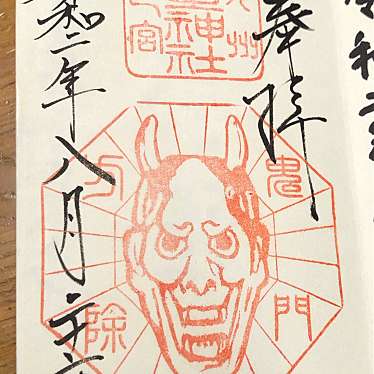 和二
奉拝
神社
鬼門
方除
和二年八月二十六